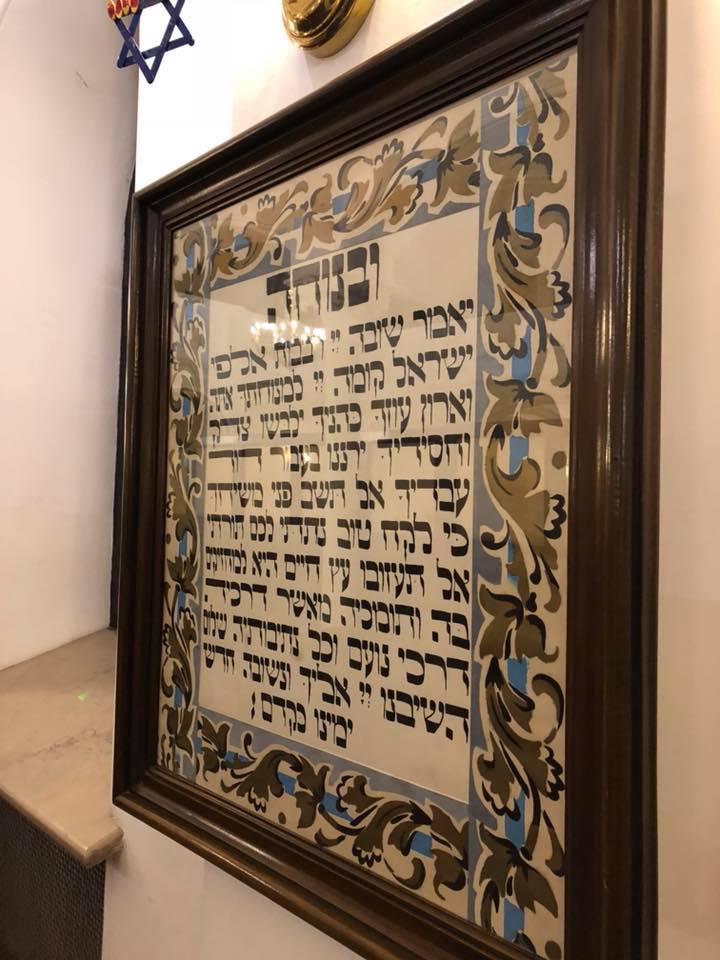 ובנוחה
יאמר שובה יי רבבות אלפי
ישראל קומה יי למנוחתך אתה
וארון עוזך כהנך ילבשו צדק
וחסידיך ירננו בעבור דוד
עבדיך אל תשב פני משיחך
כי לקח טוב נתתי לכם תורתי
אל תעזובו עץ חיים היא למחזיקים
בה ותומכיה מאשר דרכיה
דרכי נועם וכל נתיבותיה שלום
השיבנו יי אליך ונשובה חדש
ימינו כקדם: